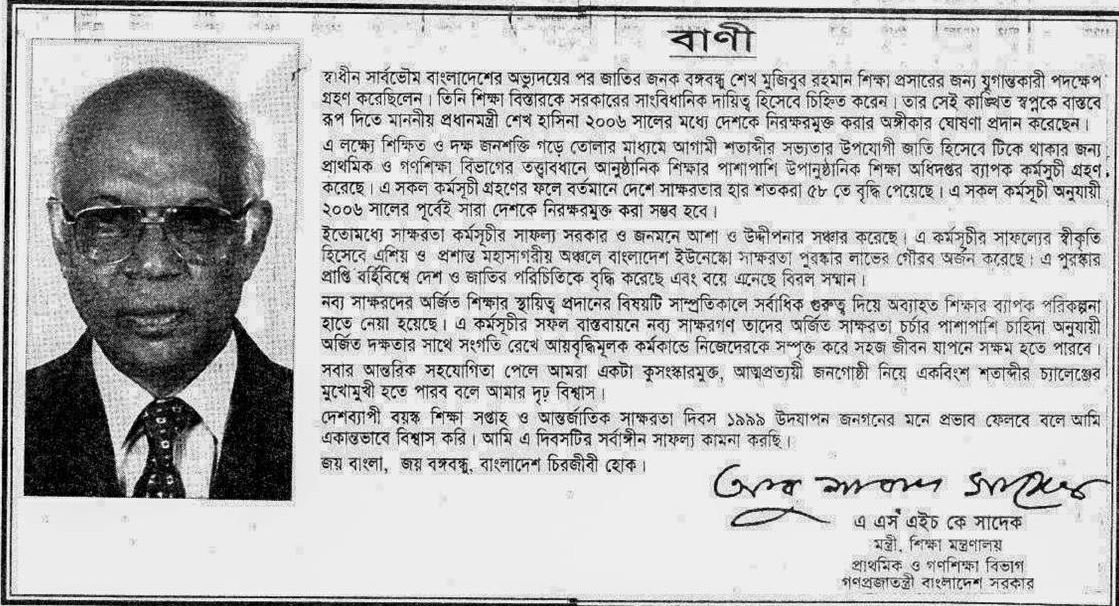 বাণী
স্বাধীন সার্বভৌম বাংলাদেশের অভ্যুদয়ের পর জাতির জনক বঙ্গবন্ধু শেখ মুজিবুর রহমান শিক্ষা প্রসারের জন্য যুগান্তকারী পদক্ষেপ
গ্রহণ করেছিলেন। তিনি শিক্ষা বিস্তারকে সরকারের সাংবিধানিক দায়িত্ব হিসেবে চিহ্নিত করেন। তার সেই কাঙ্খিত স্বপ্নকে বাস্তবে
রূপ দিতে মাননীয় প্রধানমন্ত্রী শেখ হাসিনা ২০০৬ সালের মধ্যে দেশকে নিরক্ষরমুক্ত করার অঙ্গীকার ঘোষণা প্রদান করেছেন।
এ লক্ষ্যে শিক্ষিত ও দক্ষ জনশক্তি গড়ে তোলার মাধ্যমে আগামী শতাব্দীর সভ্যতার উপযোগী জাতি হিসেবে টিকে থাকার জন্য
প্রাথমিক ও গণশিক্ষা বিভাগের তত্ত্বাবধানে আনুষ্ঠানিক শিক্ষার পাশাপাশি উপানুষ্ঠানিক শিক্ষা অধিদপ্তর ব্যাপক কর্মসূচী গ্রহণ
করেছে। এ সকল কর্মসূচী গ্রহণের ফলে বর্তমানে দেশে সাক্ষরতার হার শতকরা ৫৮ তে বৃদ্ধি পেয়েছে। এ সকল কর্মসূচী অনুযায়ী
২০০৬ সালের পূর্বেই সারা দেশকে নিরক্ষরমুক্ত করা সম্ভব হবে।
ইতোমধ্যে সাক্ষরতা কর্মসূচীর সাফল্য সরকার ও জনমনে আশা ও উদ্দীপনার সঞ্চার করেছে। এ কর্মসূচীর সাফল্যের স্বীকৃতি
হিসেবে এশিয় ও প্রশান্ত মহাসাগরীয় অঞ্চলে বাংলাদেশ ইউনেস্কো সাক্ষরতা পুরস্কার লাভের গৌরব অর্জন করেছে। এ পুরস্কার
প্রাপ্তি বর্হিবিশ্বে দেশ ও জাতির পরিচিতিকে বৃদ্ধি করেছে এবং বয়ে এনেছে বিরল সম্মান।
নব্য সাক্ষরদের অর্জিত শিক্ষার স্থায়িত্ব প্রদানের বিষয়টি সাম্প্রতিকালে সর্বাধিক গুরুত্ব দিয়ে অব্যাহত শিক্ষার ব্যাপক পরিকল্পনা
হাতে নেয়া হয়েছে। এ কর্মসূচীর সফল বাস্তবায়নে নব্য সাক্ষরগণ তাদের অর্জিত সাক্ষরতা চর্চার পাশাপাশি চাহিদা অনুযায়ী
অর্জিত দক্ষতার সাথে সংগতি রেখে আয়বৃদ্ধিমূলক কর্মকান্ডে নিজেদেরকে সম্পৃক্ত করে সহজ জীবন যাপনে সক্ষম হতে পারবে।
সবার আন্তরিক সহযোগিতা পেলে আমরা একটা কুসংস্কারমুক্ত, আত্মপ্রত্যয়ী জনগোষ্ঠী নিয়ে একবিংশ শতাব্দীর চ্যালেঞ্জের
মুখোমুখী হতে পারব বলে আমার দৃঢ় বিশ্বাস।
দেশব্যাপী বয়স্ক শিক্ষা সপ্তাহ ও আন্তর্জাতিক সাক্ষরতা দিবস ১৯৯৯ উদযাপন জনগনের মনে প্রভাব ফেলবে বলে আমি
একান্তভাবে বিশ্বাস করি। আমি এ দিবসটির সর্বাঙ্গীন সাফল্য কামনা করছি।
জয় বাংলা, জয় বঙ্গবন্ধু, বাংলাদেশ চিরজীবী হোক।
এ এস এইচ কে সাদেক
মন্ত্রী, শিক্ষা মন্ত্রণালয়
প্রাথমিক ও গণশিক্ষা বিভাগ
গণপ্রজাতন্ত্রী বাংলাদেশ সরকার